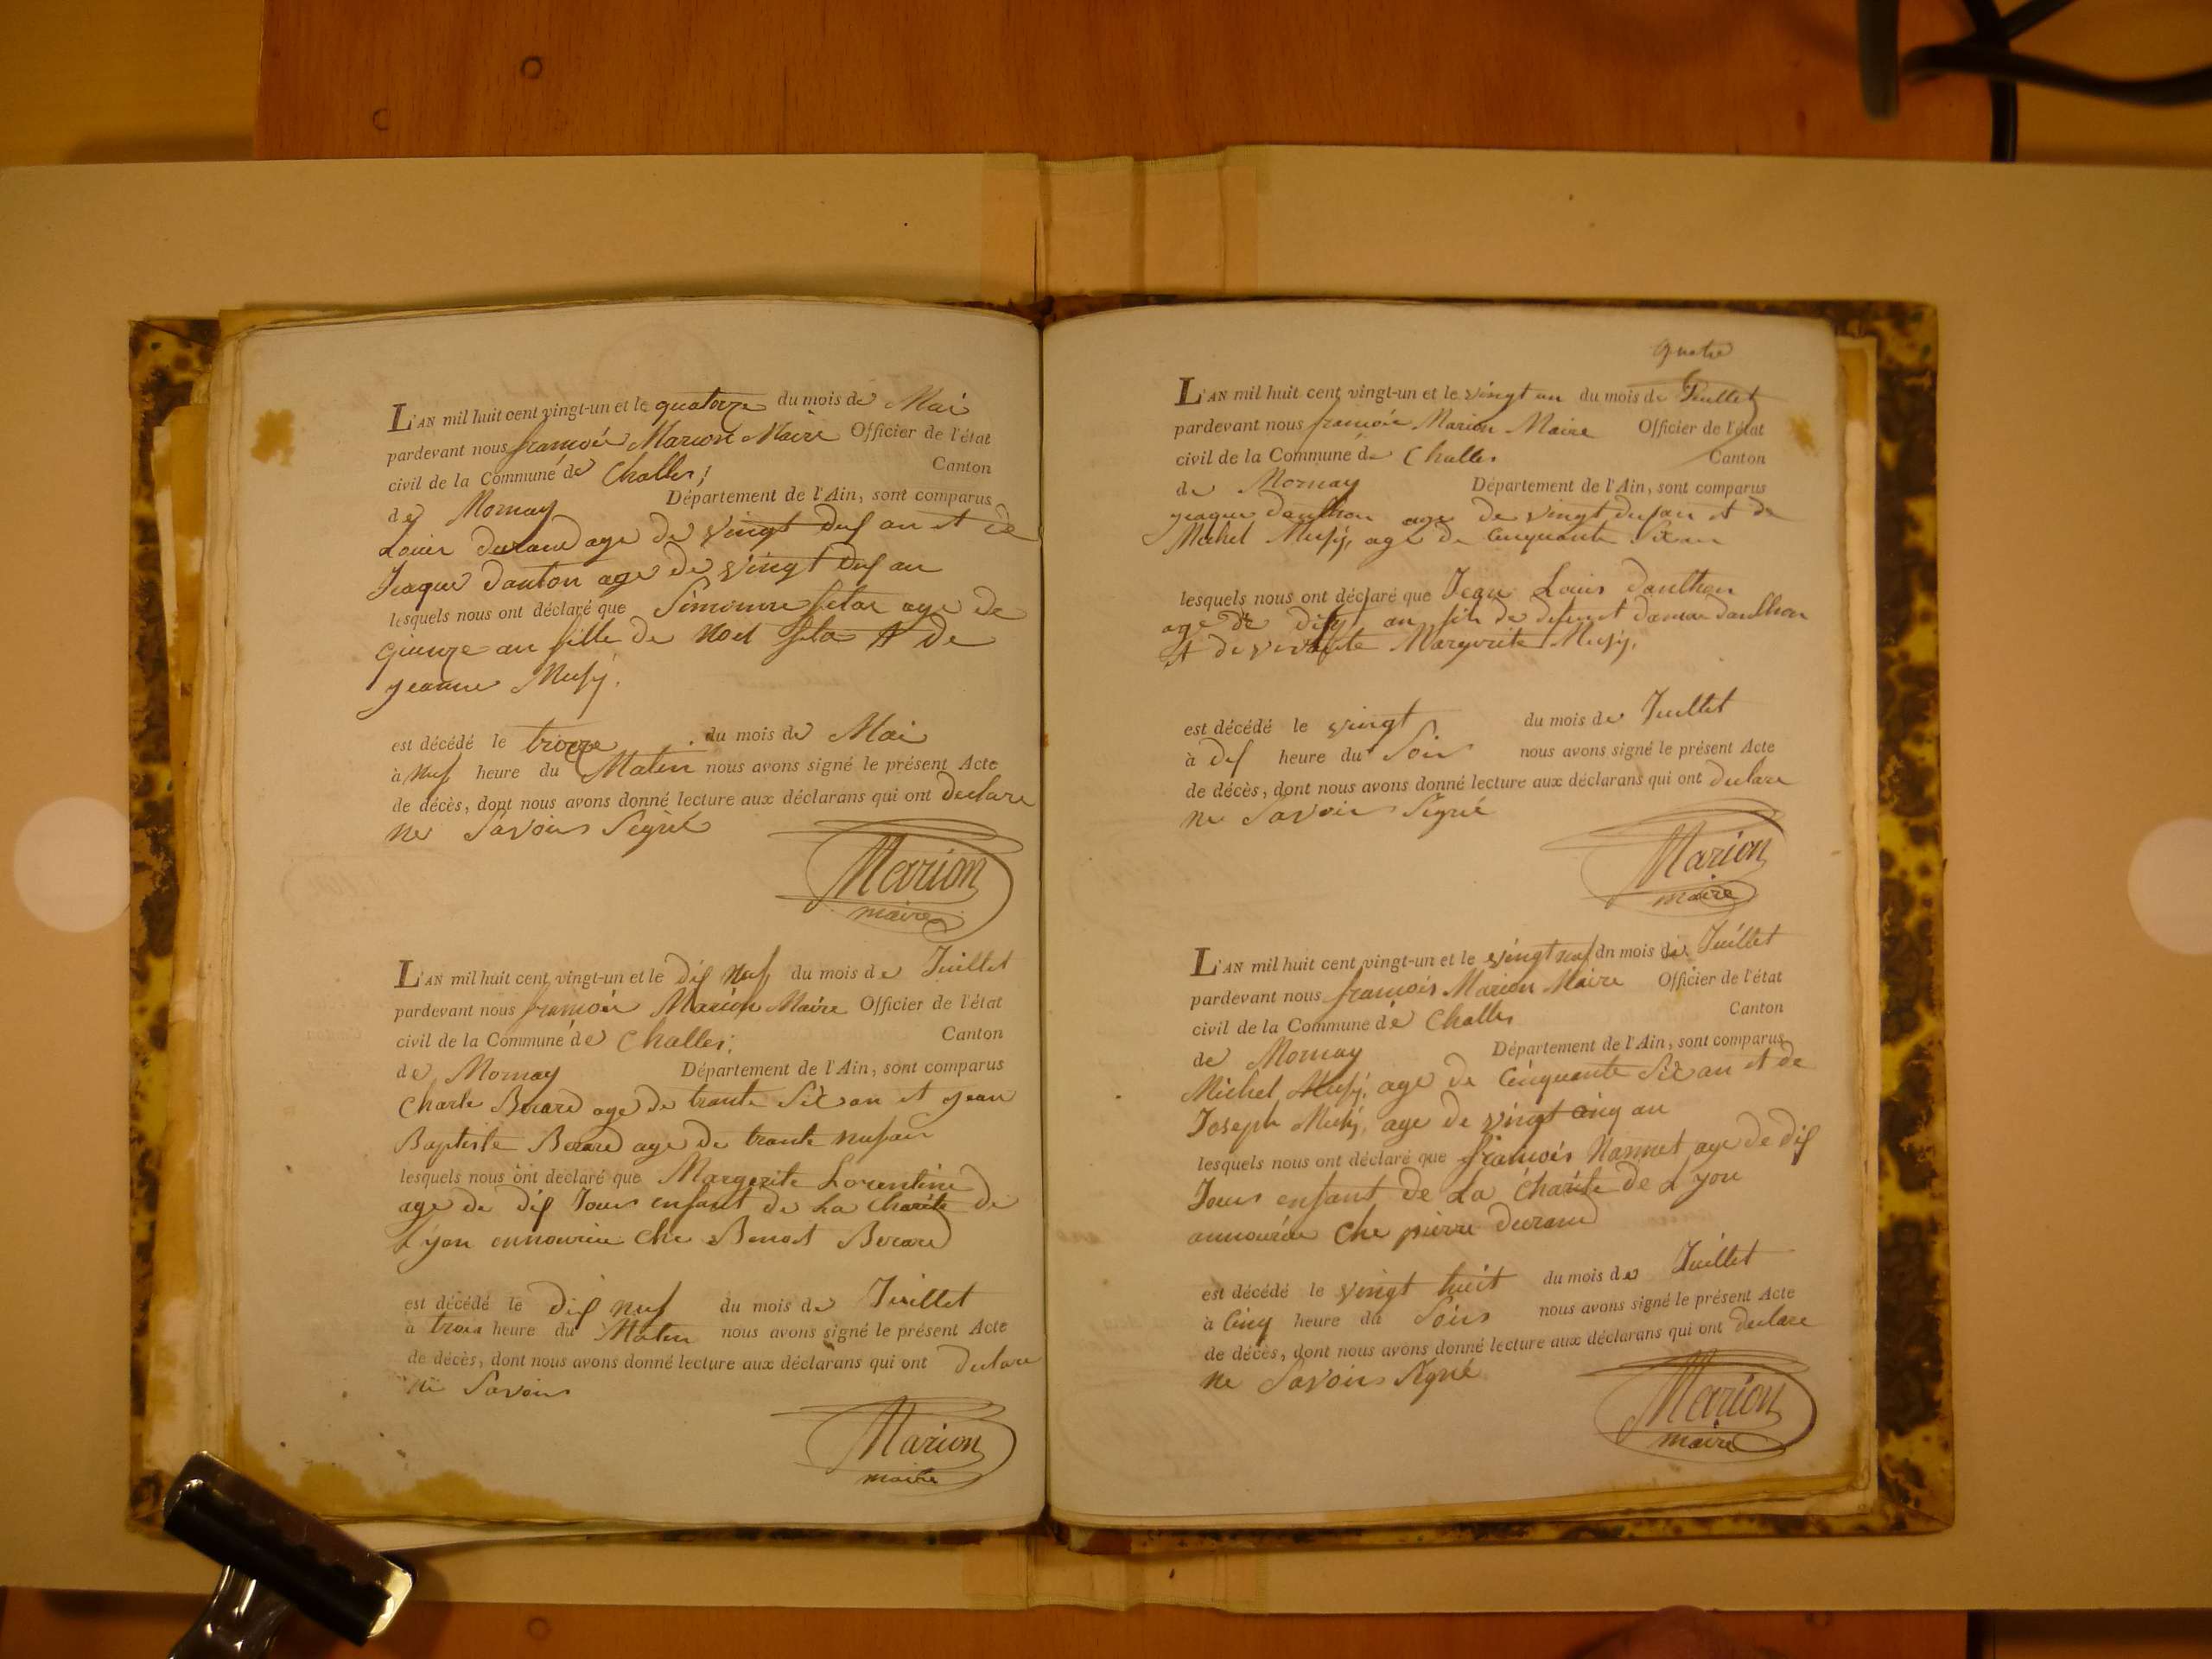 L'AN mil huit cent vingt-un et le quatorze du mois de Mai
pardevant nous françois Marion Maire Officier de l'état
civil de la Commune de Challes; Canton
de Mornay Département de l'Ain, sont comparus
Louis durand age de vingt duf an et de
Jeaque danton age de vingt duf an
lesquels nous ont déclaré que Simonne age de
quinze an fille de Noel et de
jeanne Musy.
est décédé le treze du mois de Mai
à Nuf heure du Matin nous avons signé le présent Acte
de décès, dont nous avons donné lecture aux déclarans qui ont declare
ne Savoir Signé
Marion
maire
L'AN mil huit cent vingt-un et le dif Nuf du mois de Juillet
pardevant nous françois Marion Maire Officier de l'état
civil de la Commune de Challes; Canton
de Mornay Département de l'Ain, sont comparus
Charle Berard age de trante Six an et jean
Baptiste Berard age de trante nuf an
lesquels nous ont déclaré que Margerite Lorentine
age de dif Jour enfant de La Charite de
Lyon ennourice Che Benoit Berard
est décédé le dif nuf du mois de Juillet
à trois heure du Matin nous avons signé le présent Acte
de décès, dont nous avons donné lecture aux déclarans qui ont declare
ne Savoir
Marion
maire
quatre
L'AN mil huit cent vingt-un et le vingt un du mois de Juillet
pardevant nous françois Marion Maire Officier de l'état
civil de la Commune de Challes Canton
de Mornay Département de l'Ain, sont comparus
jeaque danthon age de vingt duf an et de
Michel Musy, age de Cinquante Six an
lesquels nous ont déclaré que Jean Louis danthon
age de an fils de defunt danthon
et de vivante Margerite Musy,
est décédé le vingt du mois de Juillet
à dif heure du Soir nous avons signé le présent Acte
de décès, dont nous avons donné lecture aux déclarans qui ont declare
ne Savoir Signé
Marion
maire
L'AN mil huit cent vingt-un et le vingt nuf du mois de Juillet
pardevant nous françois Marion Maire Officier de l'état
civil de la Commune de Challes Canton
de Mornay Département de l'Ain, sont comparus
Michel Musy, age de Cinquante Six an et de
Joseph Musy, age de vingt cinq an
lesquels nous ont déclaré que françois Nannet age de dif
Jour enfant de La Charite de Lyon
annourice Che pierre durand
est décédé le vingt huit du mois de Juillet
à Cinq heure du Soir nous avons signé le présent Acte
de décès, dont nous avons donné lecture aux déclarans qui ont declare
ne Savoir Signé
Marion
maire